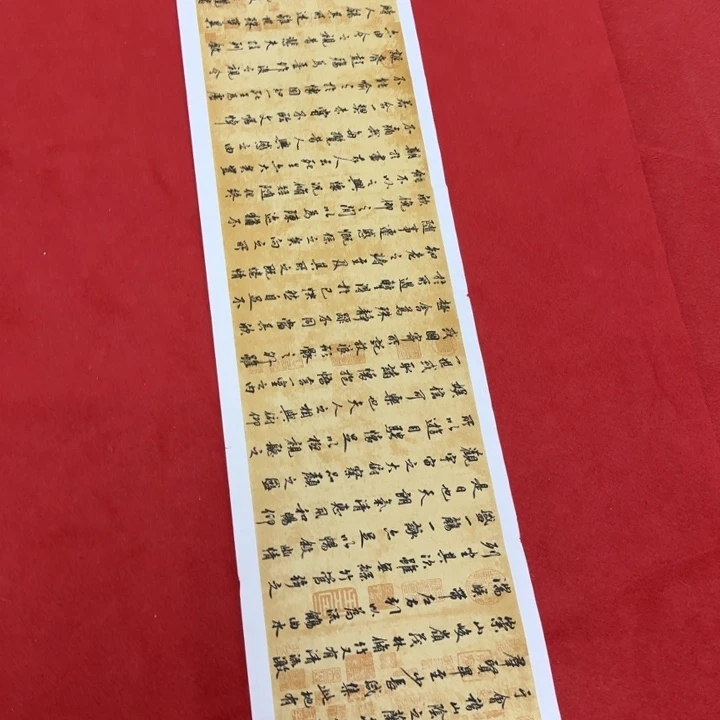 于會稽山陰之蘭
群賢畢至少長咸集此地有
崇山峻嶺茂林脩竹又有清流激
湍暎帶左右引以為流觴曲水
列坐其次雖無絲竹管弦之
盛一觴一詠亦足以暢敘幽情
是日也天朗氣清惠風和暢仰
觀宇宙之大俯察品類之盛
所以遊目騁懷足以極視聽之
娛信可樂也夫人之相與俯仰
一世或取諸懷抱悟言一室之內
或因寄所託放浪形骸之外雖
趣舍萬殊靜躁不同當其欣
於所遇暫得於己怏然自足不
知老之將至及其所之既惓情
隨事遷感慨係之矣向之所
欣俛仰之間以為陳迹猶不
能不以之興懷況脩短隨化終
期於盡古人云死生亦大矣豈
不痛哉每攬昔人興感之由
若合一契未嘗不臨文嗟悼
不能喻之於懷固知一死生為虛
誕齊彭殤為妄作後之視今
亦由今之視昔悲夫故列敘
時人錄其所述雖世殊事異